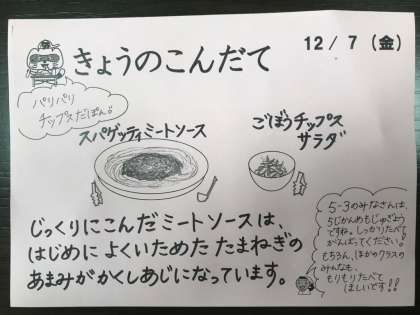 きょうのこんだて
12/7(金)
パリパリ
チップスだぽん。
スパゲッティミートソース
ごぼうチップス
サラダ
じっくりにこんだミートソースは、
はじめに よくいためた たまねぎの
あまみが かくしあじになっています。
5-3のみなさんは、
5じかんめもじゅぎょう
ですね。しっかりたべて
がんばってください。
もちろん、ほかのクラスの
みんなも、
もりもりたべて
ほしいです!!